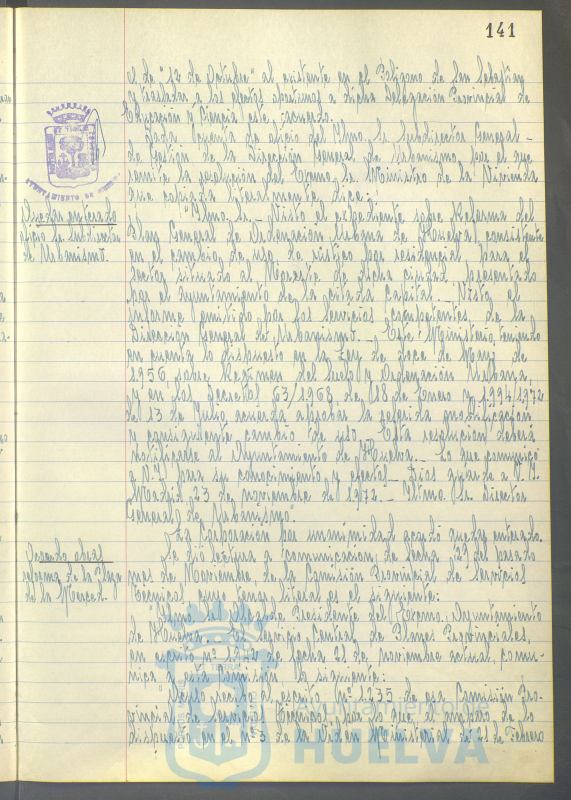 141
el de "12 de Octubre" al existente en el Polígono de San Sebastián
y trasladar a los efectos oportunos a dicha Delegación Provincial de
Educación y Ciencia este acuerdo.
Dada cuenta de oficio del Ilmo. Sr. Subdirector General
de Gestión de la Dirección General de Urbanismo, por el que
remite la resolución del Excmo. Sr. Ministro de la Vivienda
que copiada literalmente, dice:
Quedar enterado
oficio de Subdirector
de Urbanismo.
"Ilmo. Sr. - Visto el expediente sobre Reforma del
Plan General de Ordenación Urbana de Huelva, consistente
en el cambio de uso de rústico por residencial, para el
sector situado al Noroeste de dicha ciudad, presentado
por el Ayuntamiento de la citada capital. - Visto el
informe emitido por los Servicios competentes de la
Dirección General de Urbanismo. - Este Ministerio, teniendo
en cuenta lo dispuesto en la Ley de doce de Mayo de
1956, sobre Régimen del Suelo y Ordenación Urbana,
y en los Decretos 63/1968 de 18 de Enero y 1994/1972
de 13 de Julio acuerda aprobar la referida modificación
y consiguiente cambio de uso. Esta resolución deberá
notificarse al Ayuntamiento de Huelva. - Lo que comunico
a V.I. para su conocimiento y efectos. - Dios guarde a V.I.
Madrid, 23 de noviembre de 1972. - Iltmo. Sr. Director
General de Urbanismo".
La Corporación por unanimidad acordó quedar enterado.
obras
reforma de la Plaza
de la Merced.
Se dió lectura a comunicación de fecha 29 del pasado
mes de Noviembre, de la Comisión Provincial de Servicios
Técnicos, cuyo tenor literal es el siguiente:
Alcalde Presidente del Excmo. Ayuntamiento
de Huelva. - El Servicio Central de Planes Provinciales,
en escrito nº de fecha 21 de noviembre actual, comu-
nica a esta Comisión, lo siguiente:
escrito Nº 1235 de esa Comisión Pro-
vincial de Servicios Técnicos, por lo que, al amparo de lo
dispuesto en el nº 3 de la Orden Ministerial de 21 de Febrero
Ayuntamiento de
HUELVA